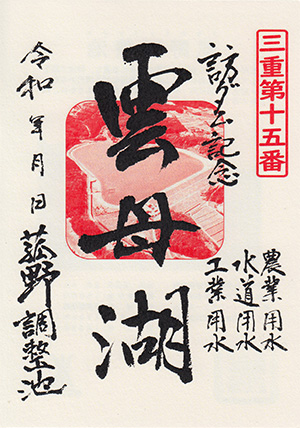 三重第十五番
訪ダム記念
農業用水
水道用水
工業用水
雲母湖
令和 年 月 日
菰野調整池